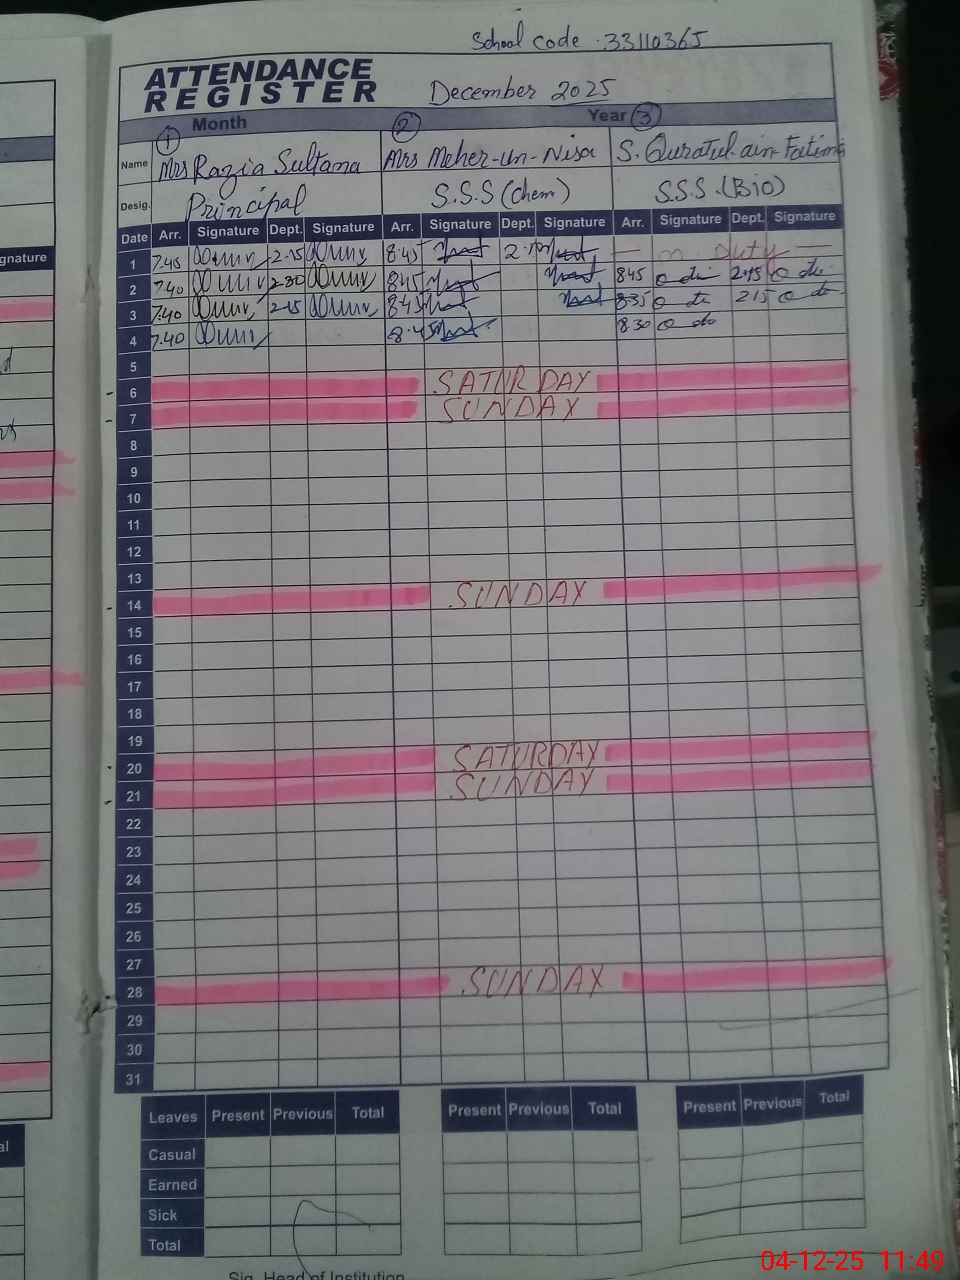 School code .33110365
ATTENDANCE
REGISTER
December 2025
Month Year
1 2 3
Name Mrs Razia Sultana Mrs Meher-un-Nisa S. Quratul-ain-Fatima
Desig. Principal S.S.S (Chem) S.S.S.(Bio)
Date Arr. Signature Dept. Signature Arr. Signature Dept. Signature Arr. Signature Dept. Signature
1 7.45 2.15 8.45 on Duty
2 7.40 2.30 8.45 8.45 2.15
3 7.40 2.15 8.45 8.35 2.15
4 7.40 8.45 8.30
5
6 SATURDAY
7 SUNDAY
8
9
10
11
12
13
14 SUNDAY
15
16
17
18
19
20 SATURDAY
21 SUNDAY
22
23
24
25
26
27
28 SUNDAY
29
30
31
Leaves Present Previous Total Present Previous Total Present Previous Total
Casual
Earned
Sick
Total
Sig. Head of Institution
gnature
al
04-12-25 11:49